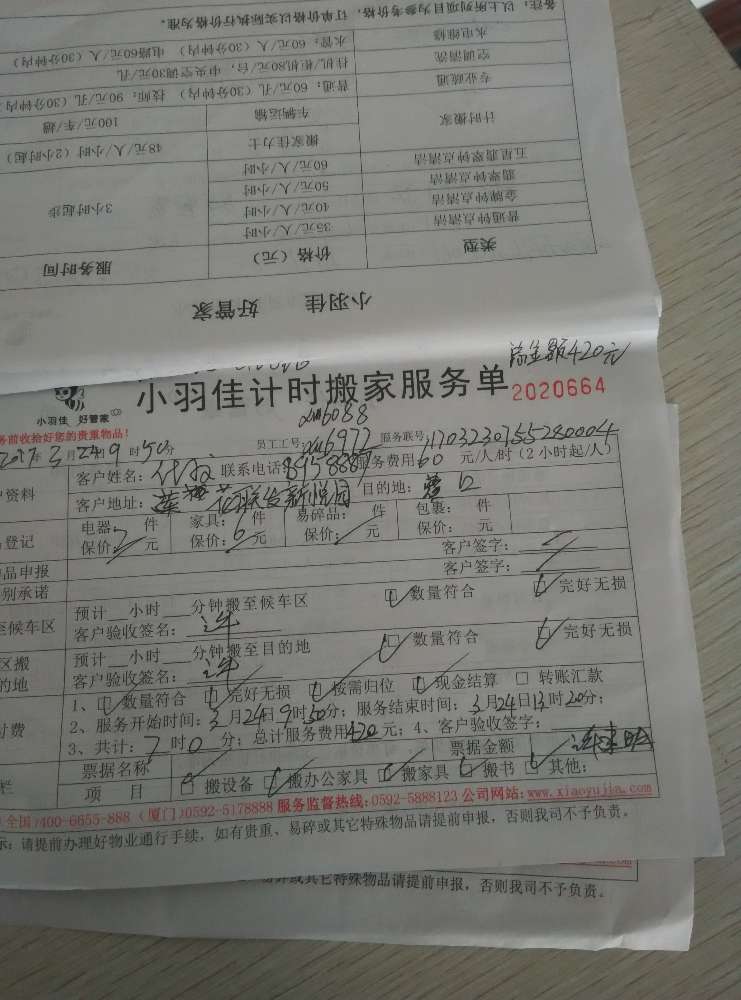 备注：以上所列项目为参考价格，订单价格以实际执行价格为准。
水电维修 水管：60元/人（30分钟内） 电路60元/人（30分钟内）
空调清洗 挂机/柜机80元/台，中央空调30元/孔
专业疏通 普通：60元/孔（30分钟内） 技师：90元/孔（30分钟内
计时搬家 车辆运输 100元/车/趟
搬家佳力士 48元/人/小时（2小时起）
五星翡翠钟点清洁 60元/人/小时
翡翠钟点清洁 50元/人/小时
金牌钟点清洁 40元/人/小时 3小时起步
普通钟点清洁 35元/人/小时
类型 价格（元） 服务时间
小羽佳 好管家
总金额420元
小羽佳计时搬家服务单 2020664
小羽佳 好管家
xm6088
务前收拾好您的贵重物品！ 员工工号：xm6977 服务联号：
2017年3月24日9时50分
户资料 客户姓名： 联系电话 服务费用60元/人/时（2小时起/人）
客户地址： 目的地：
登记 电器：7件 家具：6件 易碎品： 件 包裹： 件
保价： 元 保价： 元 保价： 元 保价： 元
品申报 客户签字：
别承诺 客户签字：
至候车区 预计 小时 分钟搬至候车区 数量符合 完好无损
客户验收签名：
区搬 预计 小时 分钟搬至目的地 数量符合 完好无损
的地 客户验收签名：
付费 1、 数量符合 完好无损 按需归位 现金结算 转账汇款
2、服务开始时间：3月24日9时50分；服务结束时间：3月24日13时20分；
3、共计：7时0分；总计服务费用420元；4、客户验收签字：
栏 票据名称 票据金额
项 目 搬设备 搬办公家具 搬家具 搬书 其他：
全国:400-6655-888（厦门）0592-5178888 服务监督热线:0592-5888123 公司网站:www.xiaoyujia.com
示：请提前办理好物业通行手续，如有贵重、易碎或其它特殊物品请提前申报，否则我司不予负责。
.com
易碎或其它特殊物品请提前申报，否则我司不予负责。